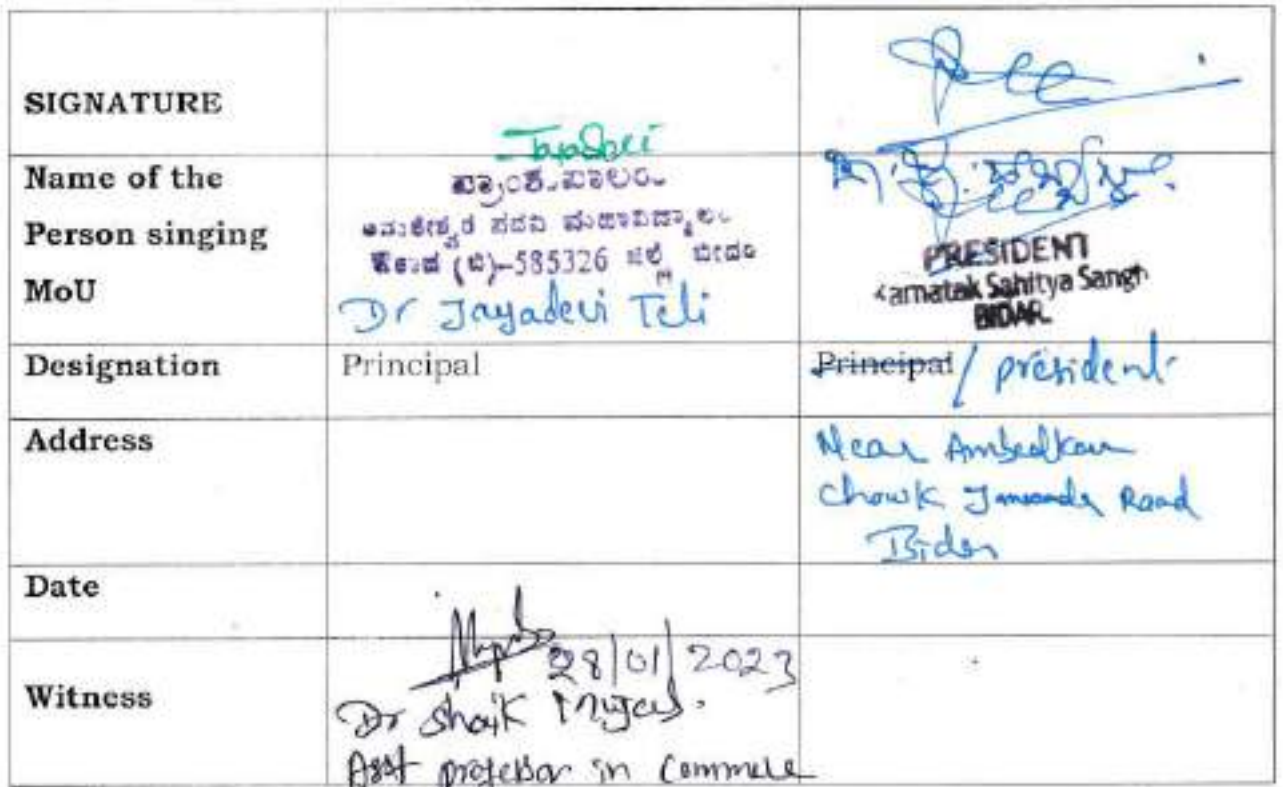 SIGNATURE
Jayashri
Name of the
Person singing
MoU
ಪ್ರಾಂಶುಪಾಲರು
ಅಮರೇಶ್ವರ ಪದವಿ ಮಹಾವಿದ್ಯಾಲಯ
ಔರಾದ (ಬಿ)-585326 ಜಿಲ್ಲೆ ಬೀದರ
Dr Jayadevi Teli
PRESIDENT
Karnatak Sahitya Sangh
BIDAR.
Designation
Principal
Principal / president
Address
Near Ambedkar
Chowk Janwada Road
Bidar
Date
Witness
28/01/2023
Dr Shaik
Asst professor in Commerce